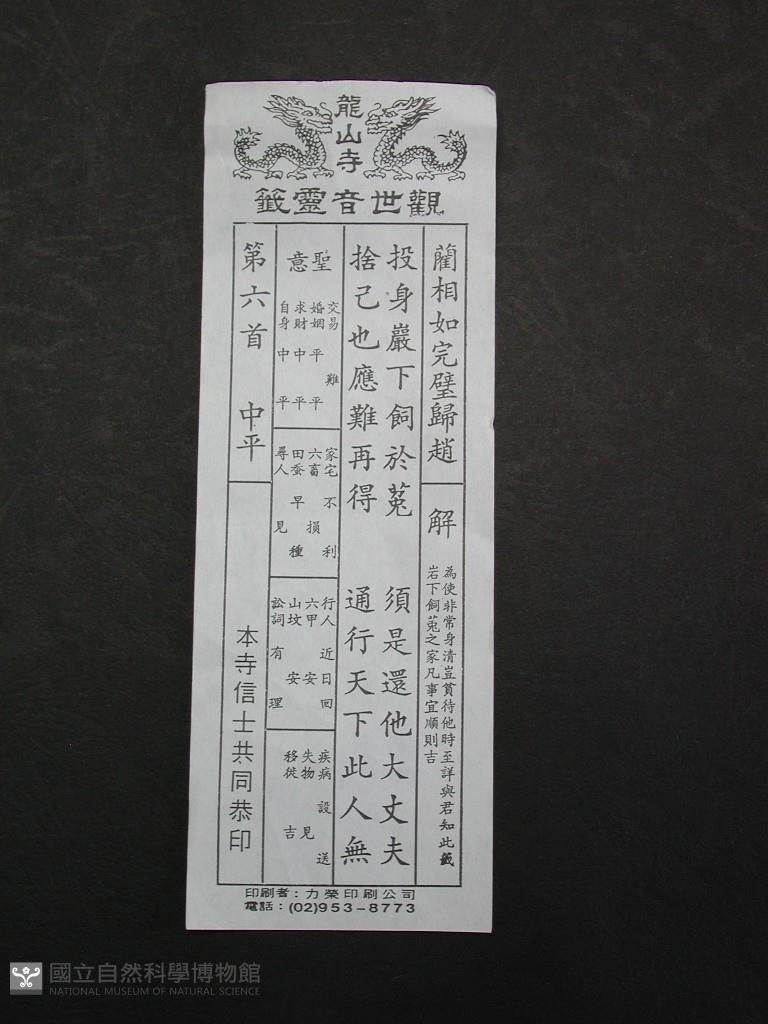 龍山寺
觀世音靈籤
藺相如完璧歸趙
解
為使非常身清豈貧待他時至詳與君知此籤
岩下飼菟之家凡事宜順則吉
投身巖下飼於菟　須是還他大丈夫
捨己也應難再得　通行天下此人無
聖意
交易　難
婚姻　平平
求財　中平
自身　中平
家宅　不利
六畜　損
田蚕　早種
尋人　見
行人　近日回
六甲　安
山坟　安
訟詞　有理
疾病　設送
失物　見
移徙　吉
第六首　中平
本寺信士共同恭印
印刷者：力榮印刷公司
電話：(02)953-8773
國立自然科學博物館
NATIONAL MUSEUM OF NATURAL SCIENCE